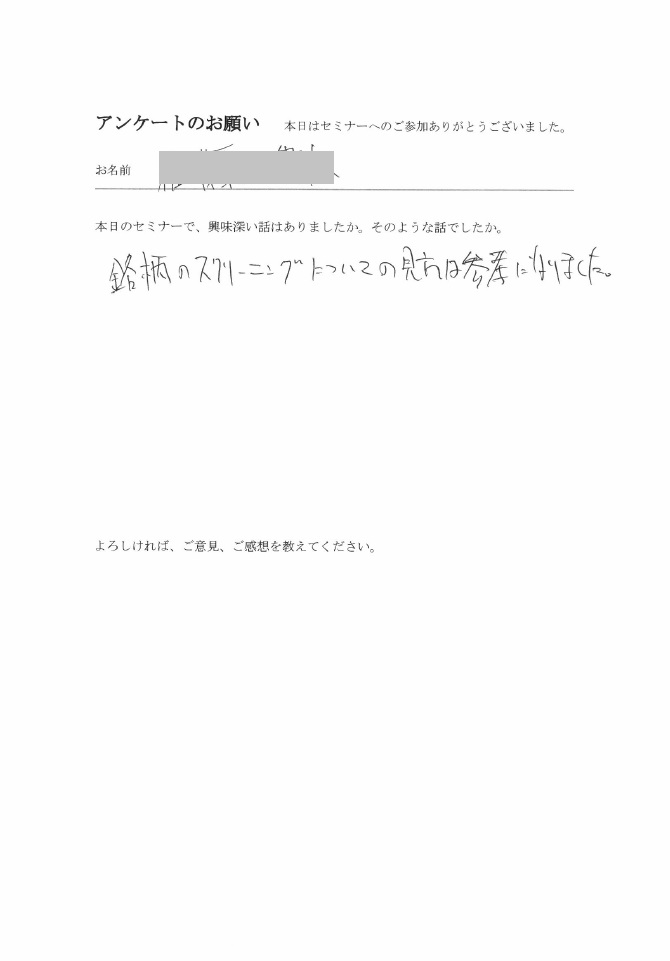 アンケートのお願い 本日はセミナーへのご参加ありがとうございました。
お名前
本日のセミナーで、興味深い話はありましたか。そのような話でしたか。
銘柄のスクリーニングについての見方は参考になりました。
よろしければ、ご意見、ご感想を教えてください。